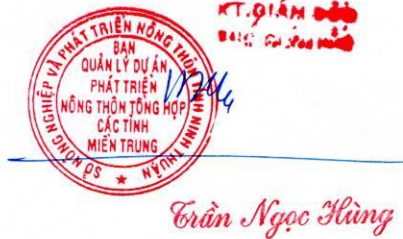 KT.GIÁM ĐỐC
SỞ NÔNG NGHIỆP VÀ PHÁT TRIỂN NÔNG THÔN TỈNH NINH THUẬN
BAN
QUẢN LÝ DỰ ÁN
PHÁT TRIỂN
NÔNG THÔN TỔNG HỢP
CÁC TỈNH
MIỀN TRUNG
Trần Ngọc Hùng